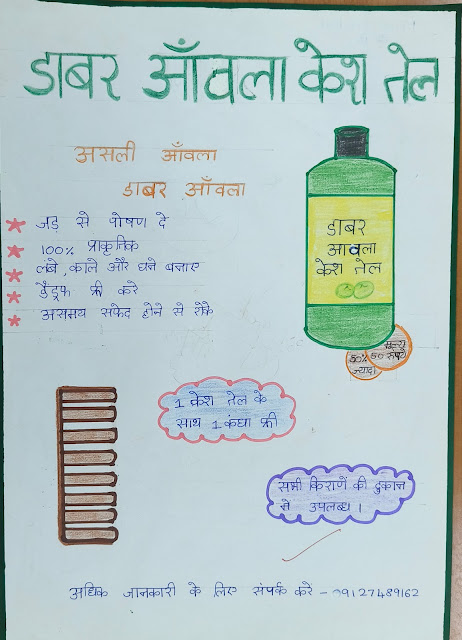 डाबर आँवला केश तेल
असली आँवला
डाबर आँवला
जड़ से पोषण दे
100% प्राकृतिक
लंबे, काले और घने बनाए
डैंड्रफ फ्री करे
असमय सफेद होने से रोके
डाबर
आवला
केश तेल
मूल्य
50 रुपये
50%
ज्यादा
1 केश तेल के
साथ 1 कंघा फ्री
सभी किराणें की दुकान
ने उपलब्ध।
अधिक जानकारी के लिए संपर्क करें - 09127489162